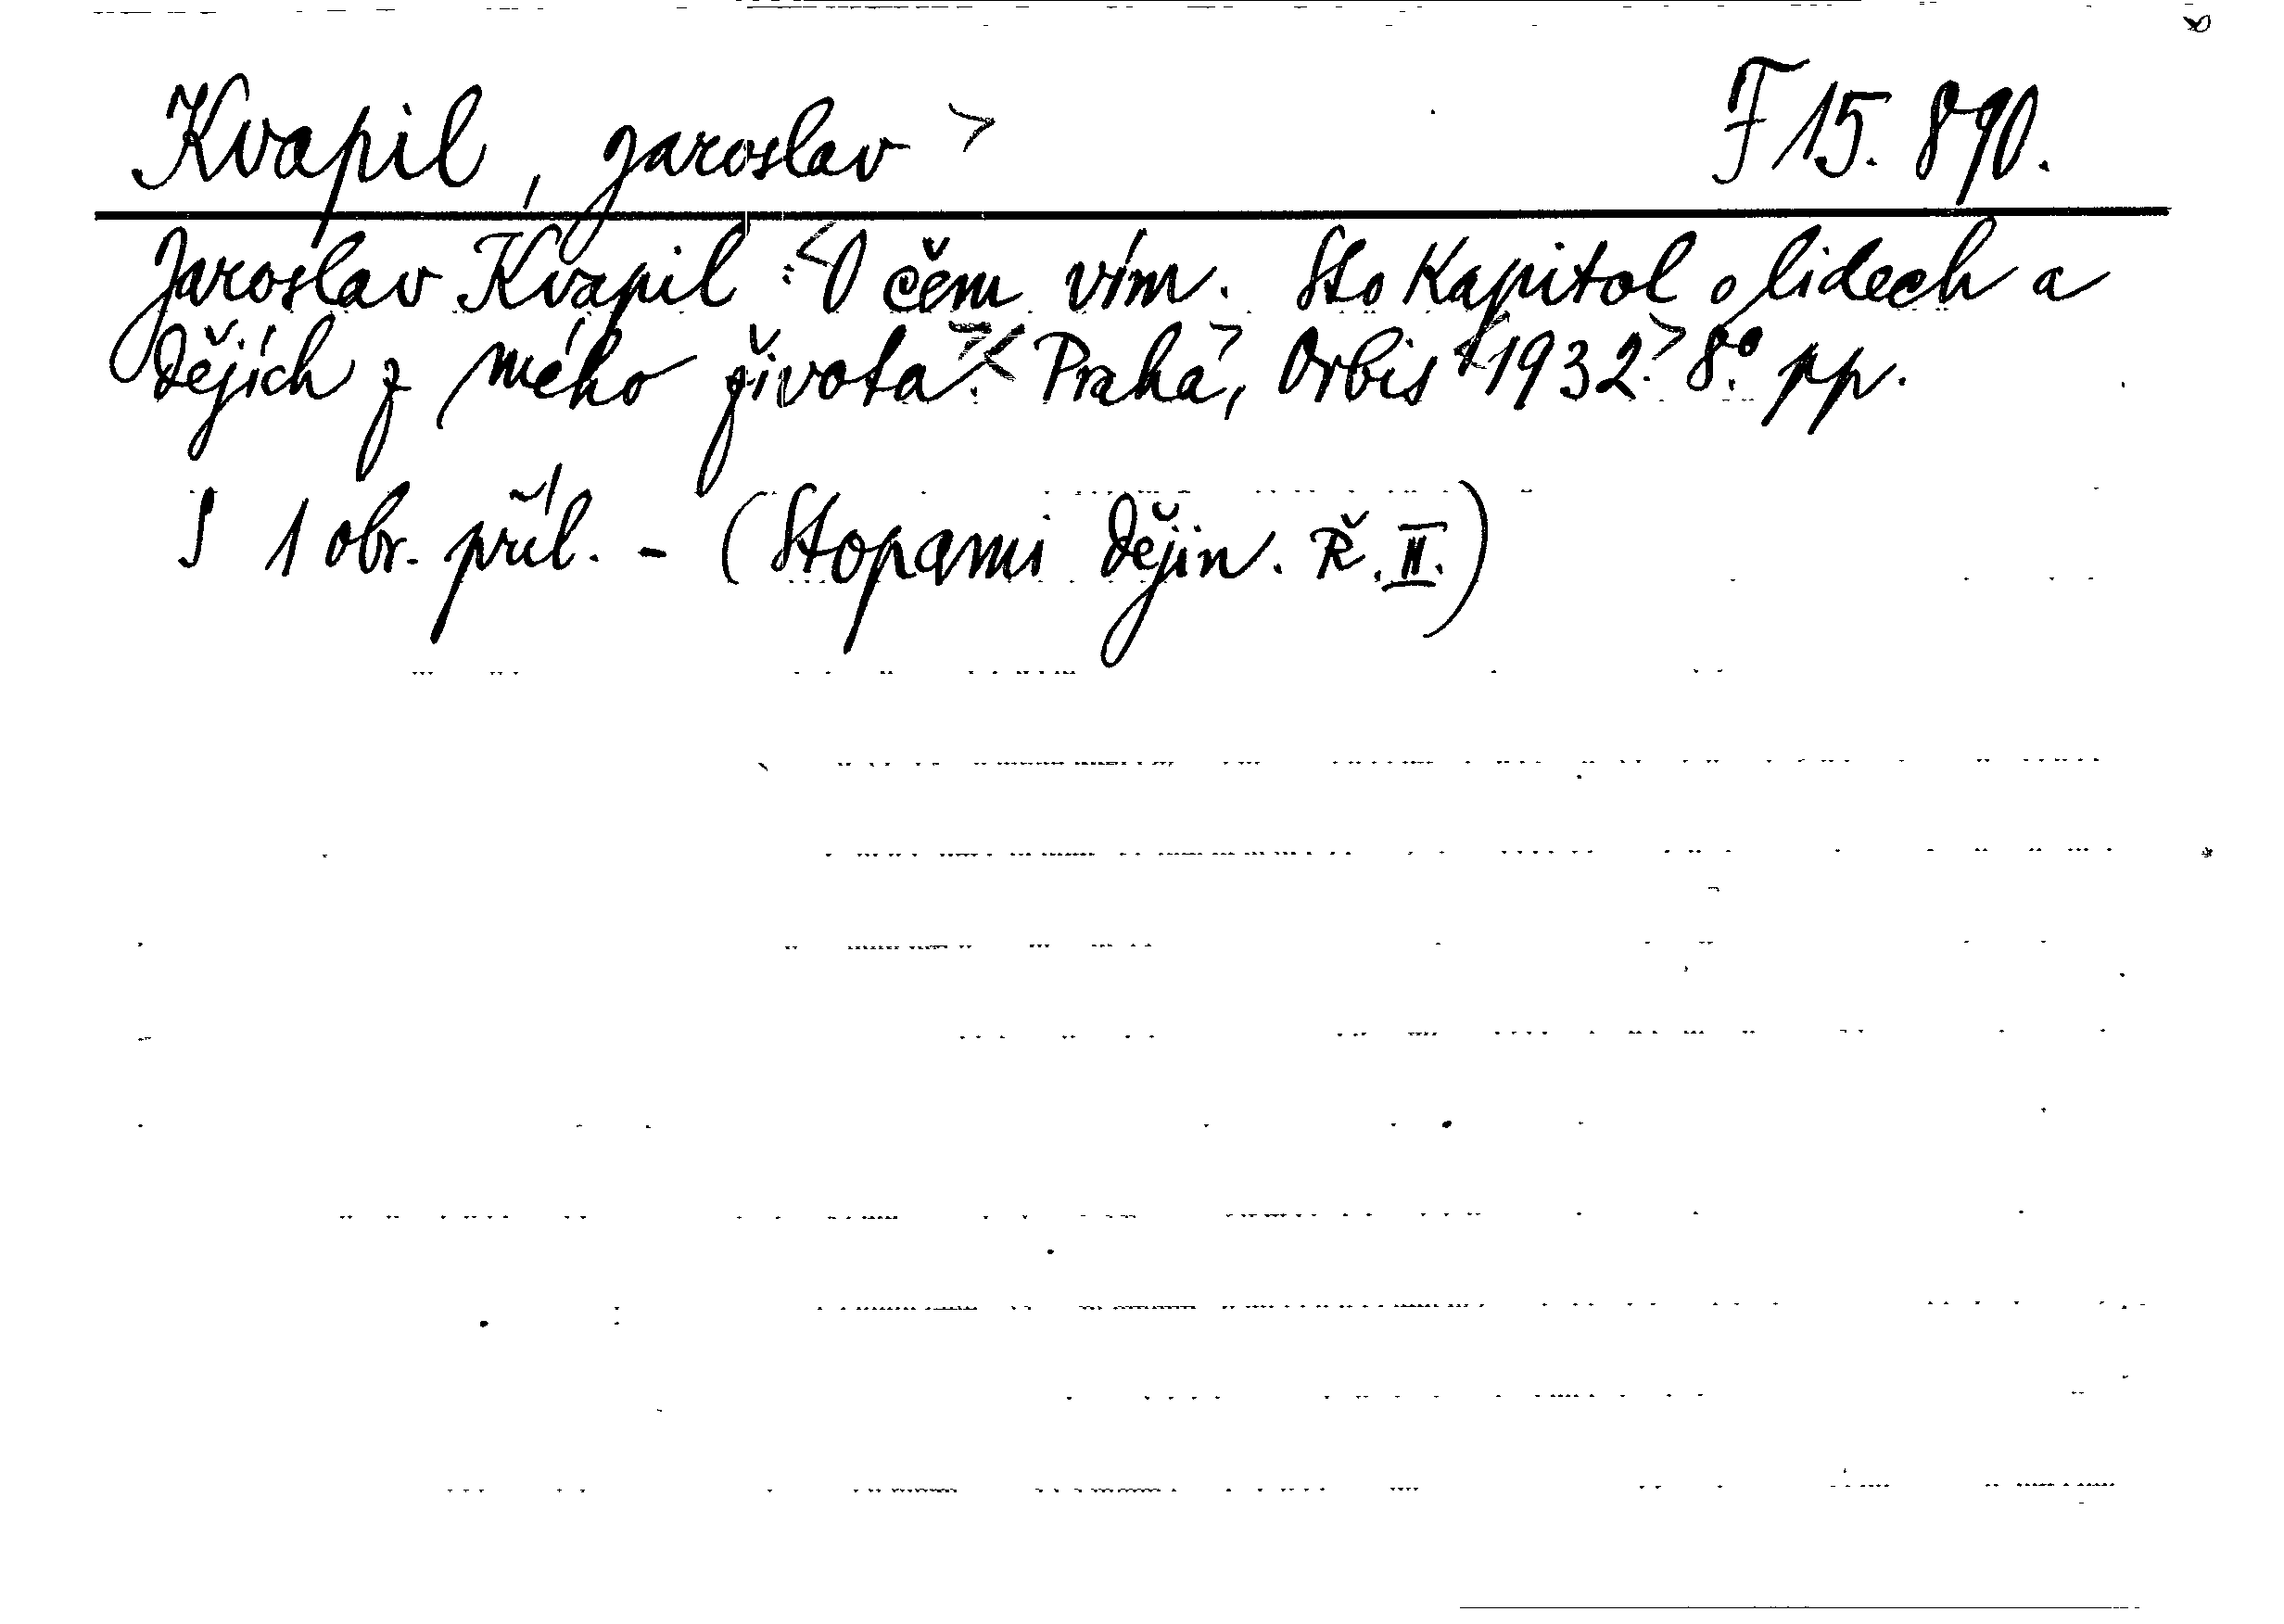 Kvapil, Jaroslav > F 15. 890.
Jaroslav Kvapil: <O čem vím. Sto kapitol o lidech a
dějích z mého života.> <Praha>, Orbis <1932.> 8.° pp.
S 1 obr. příl. - (Stopami dějin. Ř. II.)